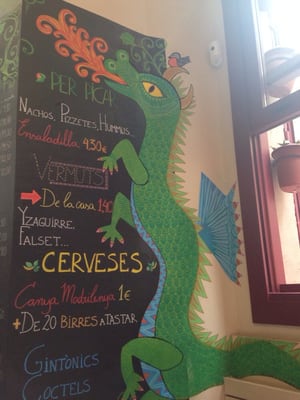 PER PICAR
NACHOS, PIZZETES, HUMMUS
Ensaladilla 4,30€
VERMUTS
De la casa 1,9€
YZAGUIRRE,
FALSET...
CERVESES
Canya Madulenya 1€
+ DE 20 BIRRES A TASTAR
GINTÒNICS
COCTELS